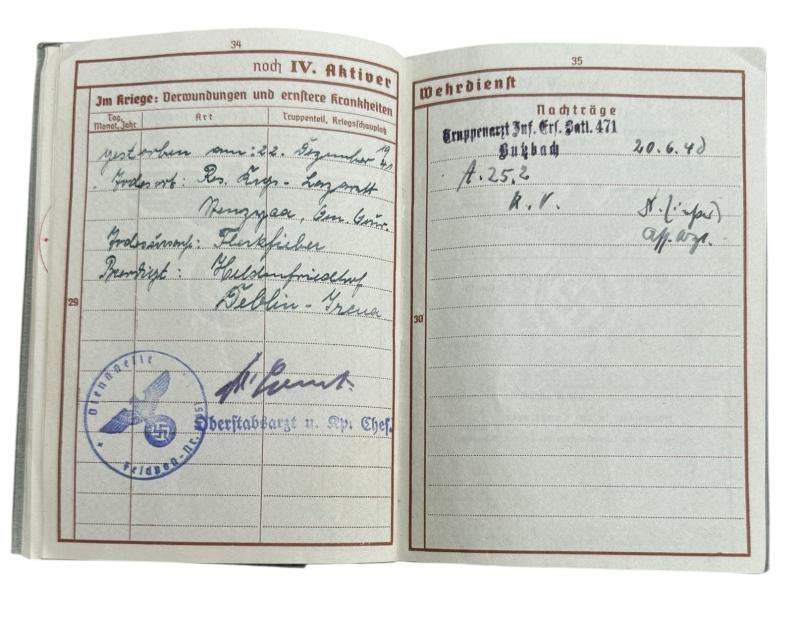 34
noch IV. Aktiver
Im Kriege: Verwundungen und ernstere Krankheiten
Tag, Monat, Jahr
Art
Truppenteil, Kriegsschauplatz
gestorben am: 22. Dezember 1941
Todesort: Res. Krgs.-Lazarett
Gen. Gour.
Todesursache: Fleckfieber
Beerdigt: Heldenfriedhof
Deblin-Irena
29
Dienststelle
Feldpost-Nr.
Oberstabsarzt u. Kp. Chef.
35
Wehrdienst
Nachträge
Truppenarzt Inf. Ers. Batl. 471
Butzbach
20.6.40
A. 25.2
K. V.
30